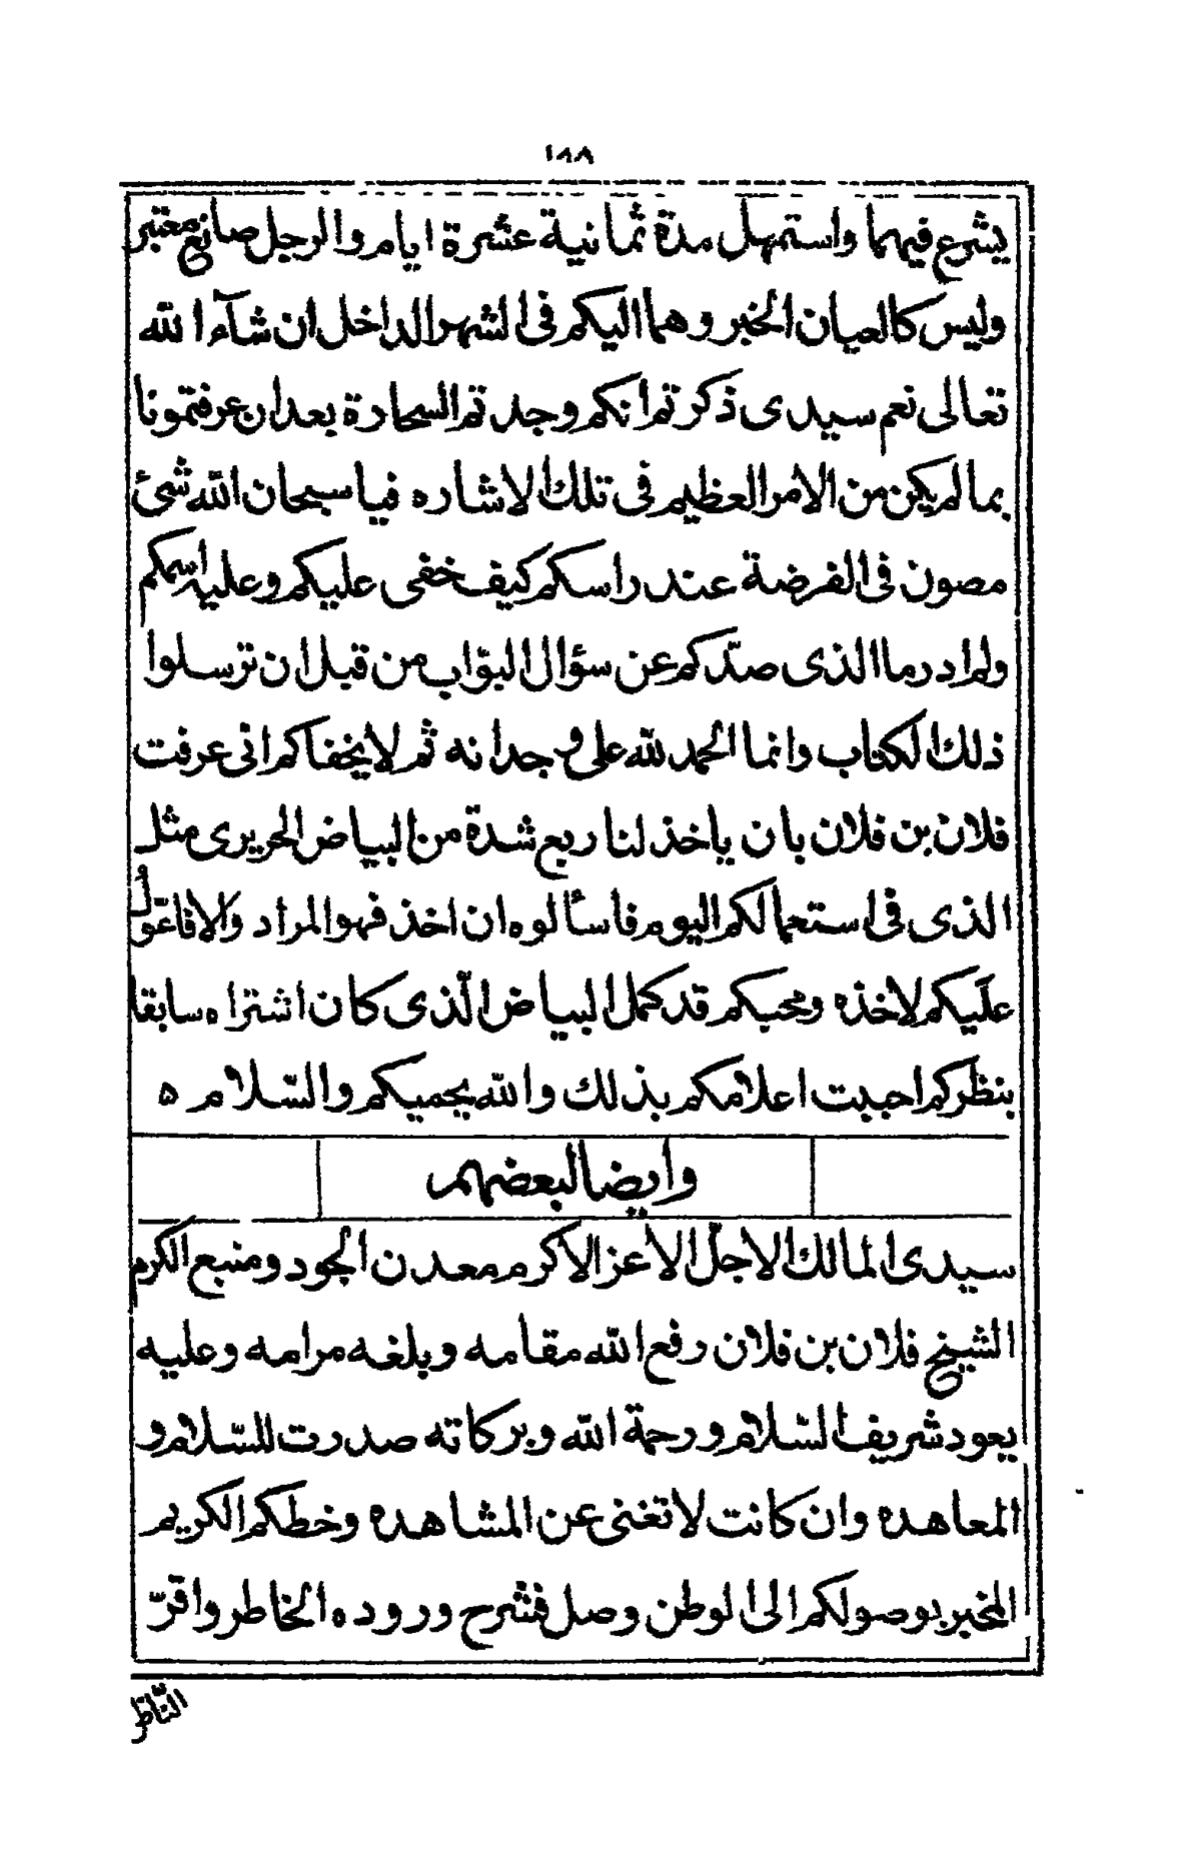 ١٨٨
يشرع فيهما واستمهل مدة ثمانية عشرة ايام والرجل صانع معتبر
وليس كالعيان الخبر وهما اليكم فى الشهر الداخل ان شآء الله
تعالى نعم سيدى ذكرتم انكم وجدتم السحارة بعد ان عرفتمونا
بما لم يكن من الامر العظيم فى تلك الاشاره فيا سبحان الله شئ
مصون فى الفرضة عند راسكم كيف خفى عليكم وعليه اسمكم
ولم ادر ما الذى صدّكم عن سؤال البوّاب من قبل ان ترسلوا
ذلك الكتاب وانما الحمد لله على وجدانه ثم لا يخفاكم انى عرفت
فلان بن فلان بان ياخذ لنا ربع شدة من البياض الحريرى مثل
الذى فى استحمالكم اليوم فاسألوه ان اخذ فهو المراد والا فاعوّل
عليكم لاخذه ومحبكم قد كمل البياض الّذى كان اشتراه سابقا
بنظركم احببت اعلامكم بذلك والله يحميكم والسّلام ٥
وايضا لبعضهم
سيدى المالك الاجلّ الاعز الاكرم معدن الجود ومنبع الكرم
الشيخ فلان بن فلان رفع الله مقامه وبلغه مرامه وعليه
يعود شريف السّلام ورحمة الله وبركاته صدرت للسّلام و
المعاهده وان كانت لا تغنى عن المشاهده وخطكم الكريم
المخبر بوصولكم الى الوطن وصل فشرح وروده الخاطر واقرّ
النّاظر